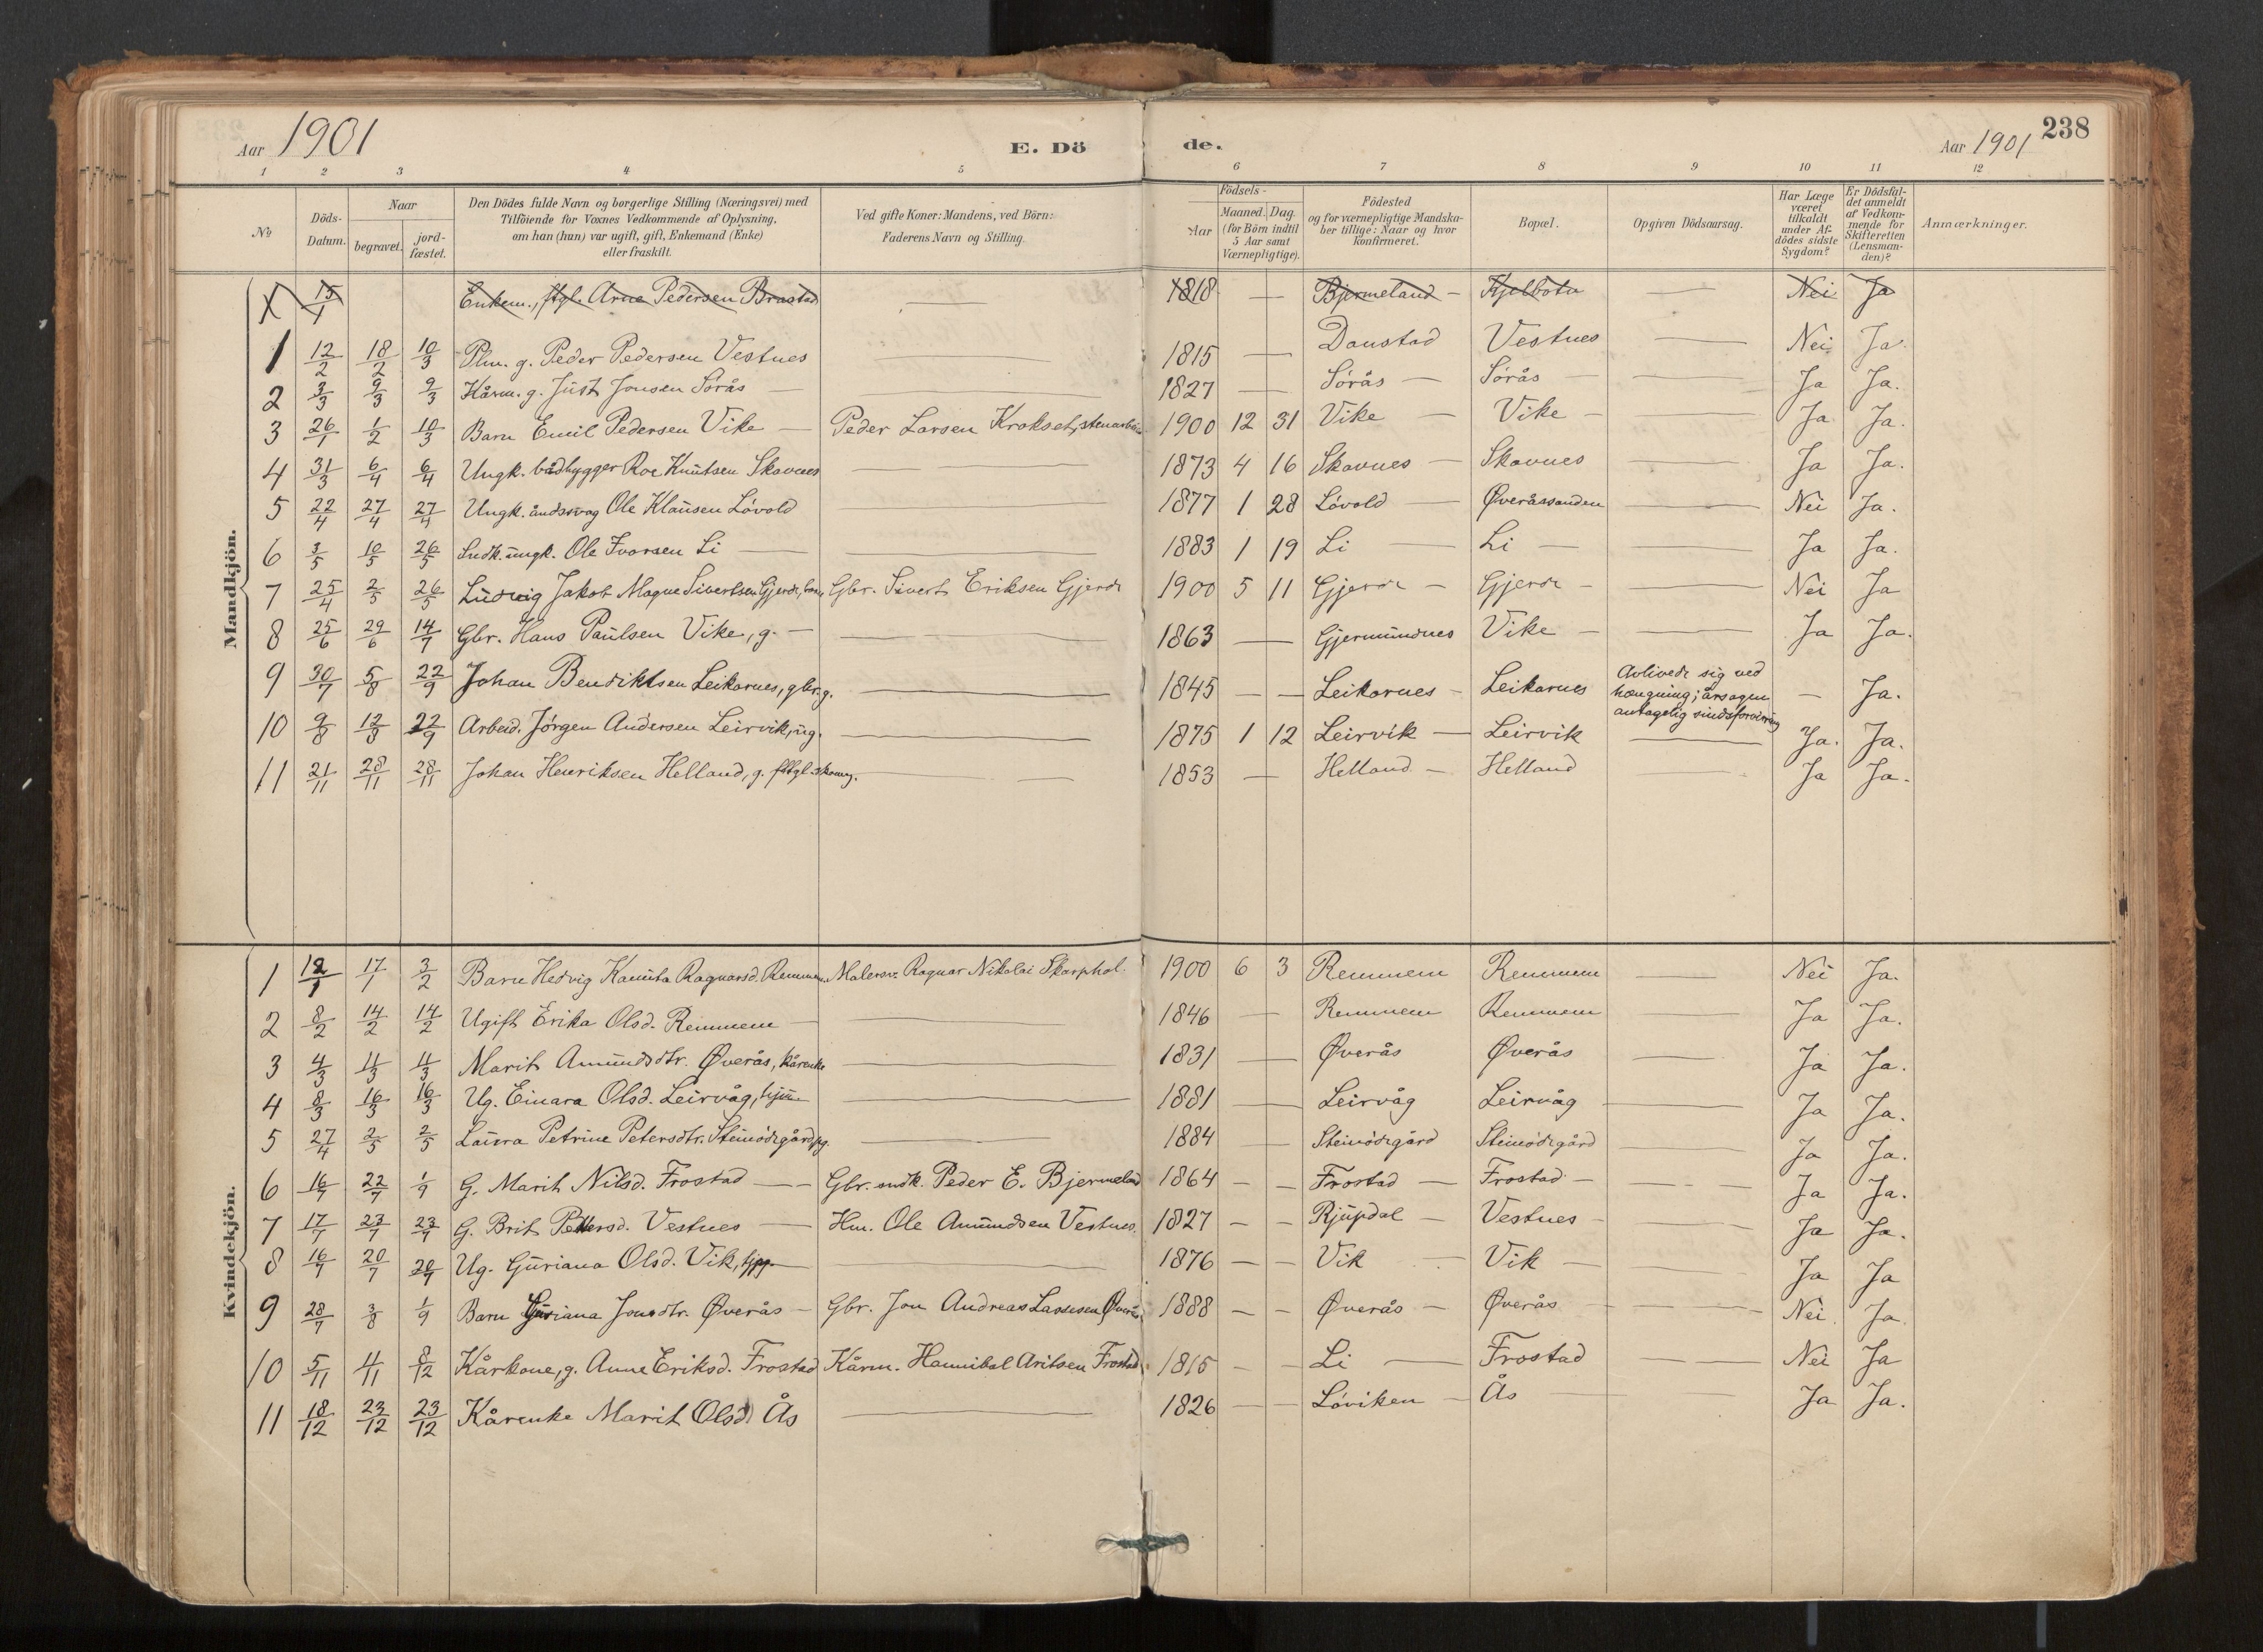 Aar 1901 E. Dö de. Aar 1901 238
1 2 3 4 5 6 7 8 9 10 11 12
No
Döds-Datum.
Naar
begravet.
jord-fæstet.
Den Dödes fulde Navn og borgerlige Stilling (Næringsvei) med
Tilföiende for Voxnes Vedkommende af Oplysning,
om han (hun) var ugift, gift, Enkemand (Enke)
eller fraskilt.
Ved gifte Koner: Mandens, ved Börn:
Faderens Navn og Stilling.
Födsels-
Aar
Maaned. Dag.
(for Börn indtil
5 Aar samt
Værnepligtige).
Födested
og for værnepligtige Mandska-
ber tillige: Naar og hvor
Konfirmeret.
Bopæl.
Opgiven Dödsaarsag.
Har Læge
været
tilkaldt
under Af-
dödes sidste
Sygdom?
Er Dödsfal-
det anmeldt
af Vedkom-
mende for
Skifteretten
(Lensman-
den)?
Anmærkninger.
Mandkjön.
X 15/1 Enkem., ftgl. Arne Pedersen Brastad — 1818 — Bjermeland — Kjelbotn — Nei Ja
1 12/2 18/2 10/3 Plm. g. Peder Pedersen Vestnes — 1815 — Danstad Vestnes — Nei Ja.
2 3/3 9/3 9/3 Kårm. g. Just Jonsen Sørås — 1827 — Sørås — Sørås — Ja Ja.
3 26/1 1/2 10/3 Barn Emil Pedersen Vike — Peder Larsen Krokset, stenarb. 1900 12 31 Vike — Vike — Ja Ja.
4 31/3 6/4 6/4 Ungk. bådbygger Roe Knutsen Skavnes — 1873 4 16 Skavnes — Skavnes — Ja Ja.
5 22/4 27/4 27/4 Ungk. åndssvag Ole Klausen Løvold — 1877 1 28 Løvold — Øveråssanden — Nei Ja.
6 3/5 10/5 26/5 Indk. ungk. Ole Ivarsen Li — 1883 1 19 Li — Li — Ja Ja.
7 25/4 2/5 26/5 Ludvig Jakob Magne Sivertsen Gjerde, barn Gbr. Sivert Eriksen Gjerde 1900 5 11 Gjerde — Gjerde — Nei Ja
8 25/6 29/6 14/7 Gbr. Hans Paulsen Vike, g. — 1863 — Gjermundnes Vike — Ja Ja.
9 30/7 5/8 22/9 Johan Bendiktsen Leikarnes, gbr. g. — 1845 — — Leikarnes — Leikarnes Avlivede sig ved
hængning; årsagen
antagelig sindsforvirring — Ja.
10 9/8 12/8 22/9 Arbeid. Jørgen Andersen Leirvik, ug. — 1875 1 12 Leirvik — Leirvik — Ja. Ja.
11 21/11 28/11 28/11 Johan Henriksen Helland, g. — 1853 — Helland — Helland — Ja Ja.
Kvindekjön.
1 12/1 17/1 3/2 Barn Hedvig Kamita Ragnarsd. Remmem Malersv. Ragnar Nikolai Skarphol. 1900 6 3 Remmem Remmem — Nei Ja.
2 8/2 14/2 14/2 Ugift Erika Olsd. Remmem — 1846 — Remmem Remmem — Ja Ja.
3 4/3 11/3 11/3 Marit Amundsdtr. Øverås, kårenke — 1831 — Øverås Øverås — Ja Ja.
4 8/3 16/3 16/3 Ug. Einara Olsd. Leirvåg, — 1881 — Leirvåg Leirvåg — Ja Ja.
5 27/4 2/5 2/5 Laura Petrine Petersdtr. Steinødegård, pg. — 1884 — Steinødegård Steinødegård Ja Ja.
6 16/7 22/7 1/9 G. Marit Nilsd. Frostad — Gbr. indk. Peder E. Bjermeland 1864 — — Frostad — Frostad — Ja Ja.
7 17/7 23/7 23/7 G. Brit Pettersd. Vestnes — Hm. Ole Amundsen Vestnes. 1827 — — Rjupdal — Vestnes — Ja Ja.
8 16/7 20/7 20/7 Ug. Guriana Olsd. Vik, tjpg. — 1876 — — Vik Vik — Ja Ja
9 28/7 3/8 1/9 Barn Guriana Jonsdtr. Øverås — Gbr. Jon Andreas Lassesen Øverås 1888 — — Øverås — Øverås — Nei Ja
10 5/11 11/11 8/12 Kårkone, g. Anne Eriksd. Frostad Kårm. Hannibal Aritsen Frostad 1815 — — Li — Frostad — Nei Ja
11 18/12 23/12 23/12 Kårenke Marit Olsd. Ås — 1826 — — Løviken — Ås — Ja Ja.